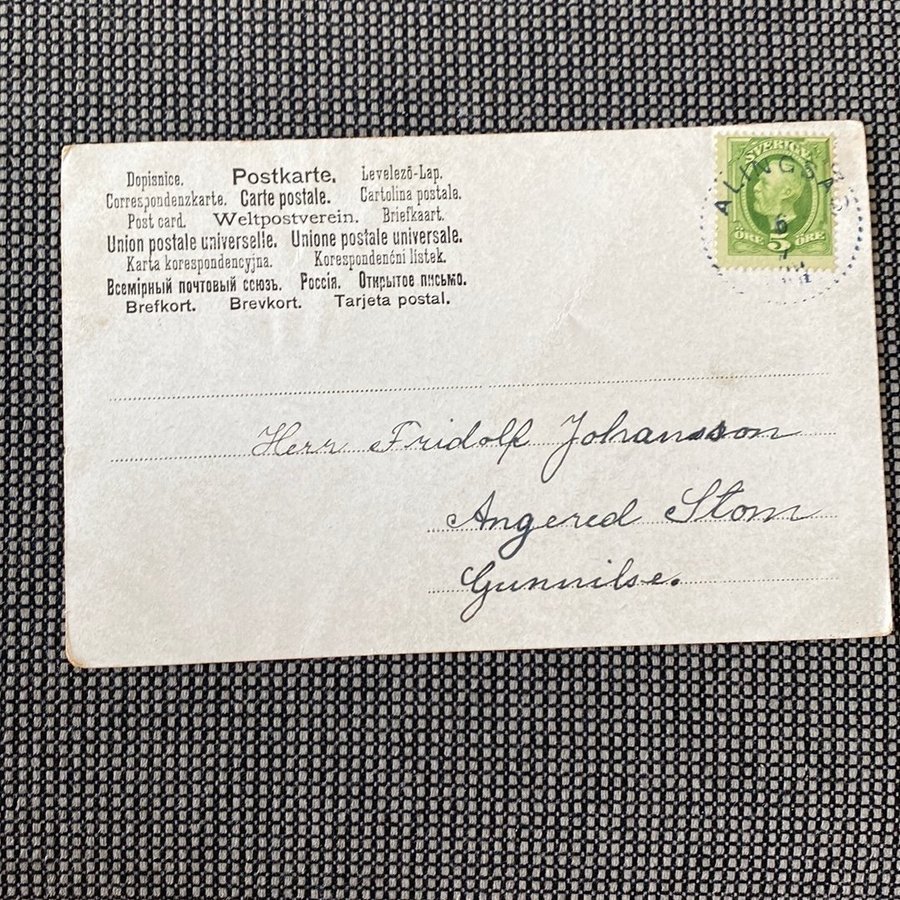 Dopisnice. Postkarte. Levelező-Lap.
Correspondenzkarte. Carte postale. Cartolina postale.
Post card. Weltpostverein. Briefkaart.
Union postale universelle. Unione postale universale.
Karta korespondencyjna. Korespondenční lístek.
Всемірный почтовый союзъ. Россія. Открытое письмо.
Brefkort. Brevkort. Tarjeta postal.
SVERIGE
ALINGSÅS
6
7
ÖRE 5 ÖRE
Herr Fridolf Johansson
Angered Stom
Gunnilse.